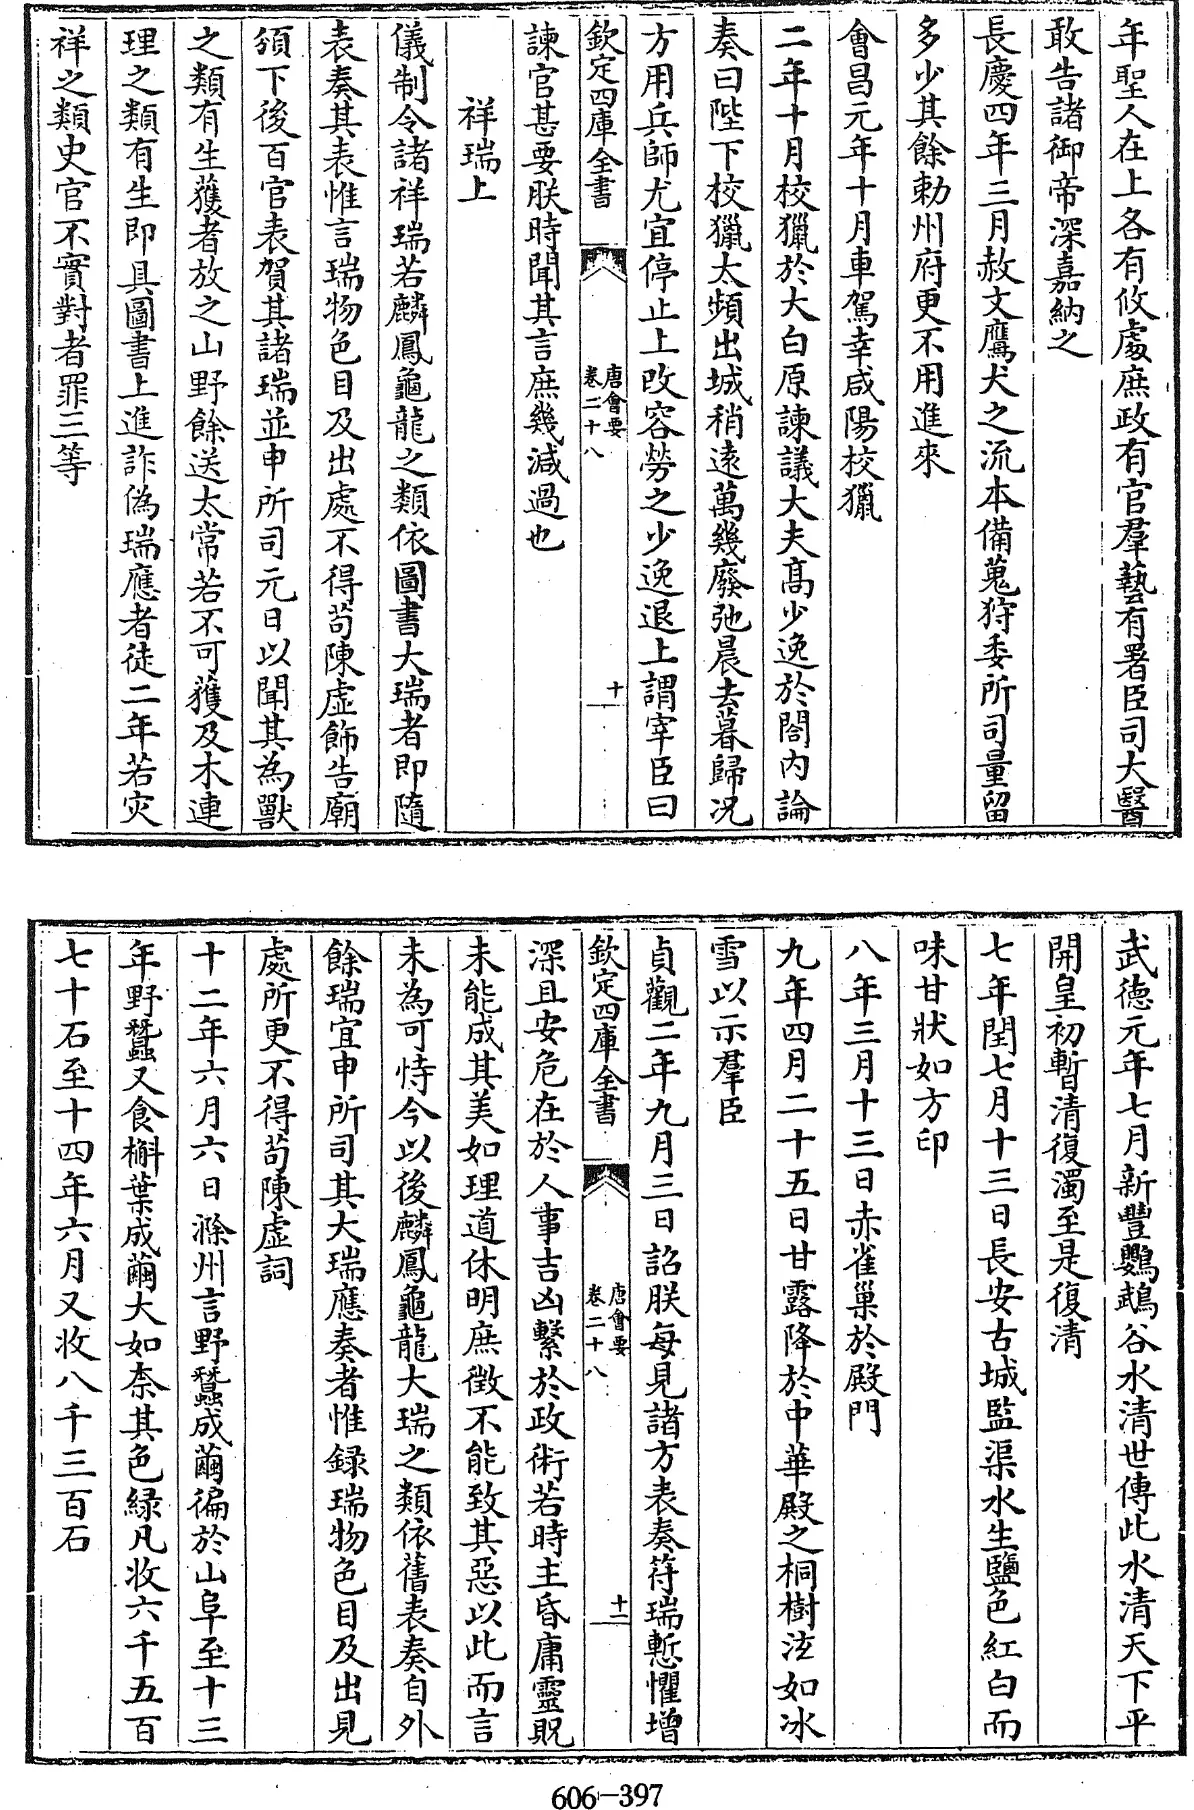 年聖人在上各有攸處庶政有官羣藝有署臣司大醫
敢告諸御帝深嘉納之
長慶四年三月赦文鷹犬之流本備蒐狩委所司量留
多少其餘勅州府更不用進來
會昌元年十月車駕幸咸陽校獵
二年十月校獵於大白原諫議大夫髙少逸於閤内論
奏曰陛下校獵太頻出城稍逺萬幾廢弛晨去暮歸况
方用兵師尤宜停止上改容勞之少逸退上謂宰臣曰
欽定四庫全書
唐會要
卷二十八
十一
諫官甚要朕時聞其言庶幾減過也
祥瑞上
儀制令諸祥瑞若麟鳳龜龍之類依圖書大瑞者即隨
表奏其表惟言瑞物色目及出處不得苟陳虛飾告廟
頒下後百官表賀其諸瑞並申所司元日以聞其為獸
之類有生獲者放之山野餘送太常若不可獲及木連
理之類有生即具圖書上進詐偽瑞應者徒二年若灾
祥之類史官不實對者罪三等
武德元年七月新豐鸚鵡谷水清世傳此水清天下平
開皇初暫清復濁至是復清
七年閏七月十三日長安古城監渠水生鹽色紅白而
味甘狀如方印
八年三月十三日赤雀巢於殿門
九年四月二十五日甘露降於中華殿之桐樹泫如冰
雪以示羣臣
貞觀二年九月三日詔朕每見諸方表奏符瑞慙懼增
欽定四庫全書
唐會要
卷二十八
十二
深且安危在於人事吉凶繫於政術若時主昏庸靈貺
未能成其美如理道休明庶徵不能致其惡以此而言
未為可恃今以後麟鳳龜龍大瑞之類依舊表奏自外
餘瑞宜申所司其大瑞應奏者惟録瑞物色目及出見
處所更不得苟陳虛詞
十二年六月六日滁州言野蠶成繭徧於山阜至十三
年野蠶又食槲葉成繭大如柰其色緑凡收六千五百
七十石至十四年六月又收八千三百石
606-397